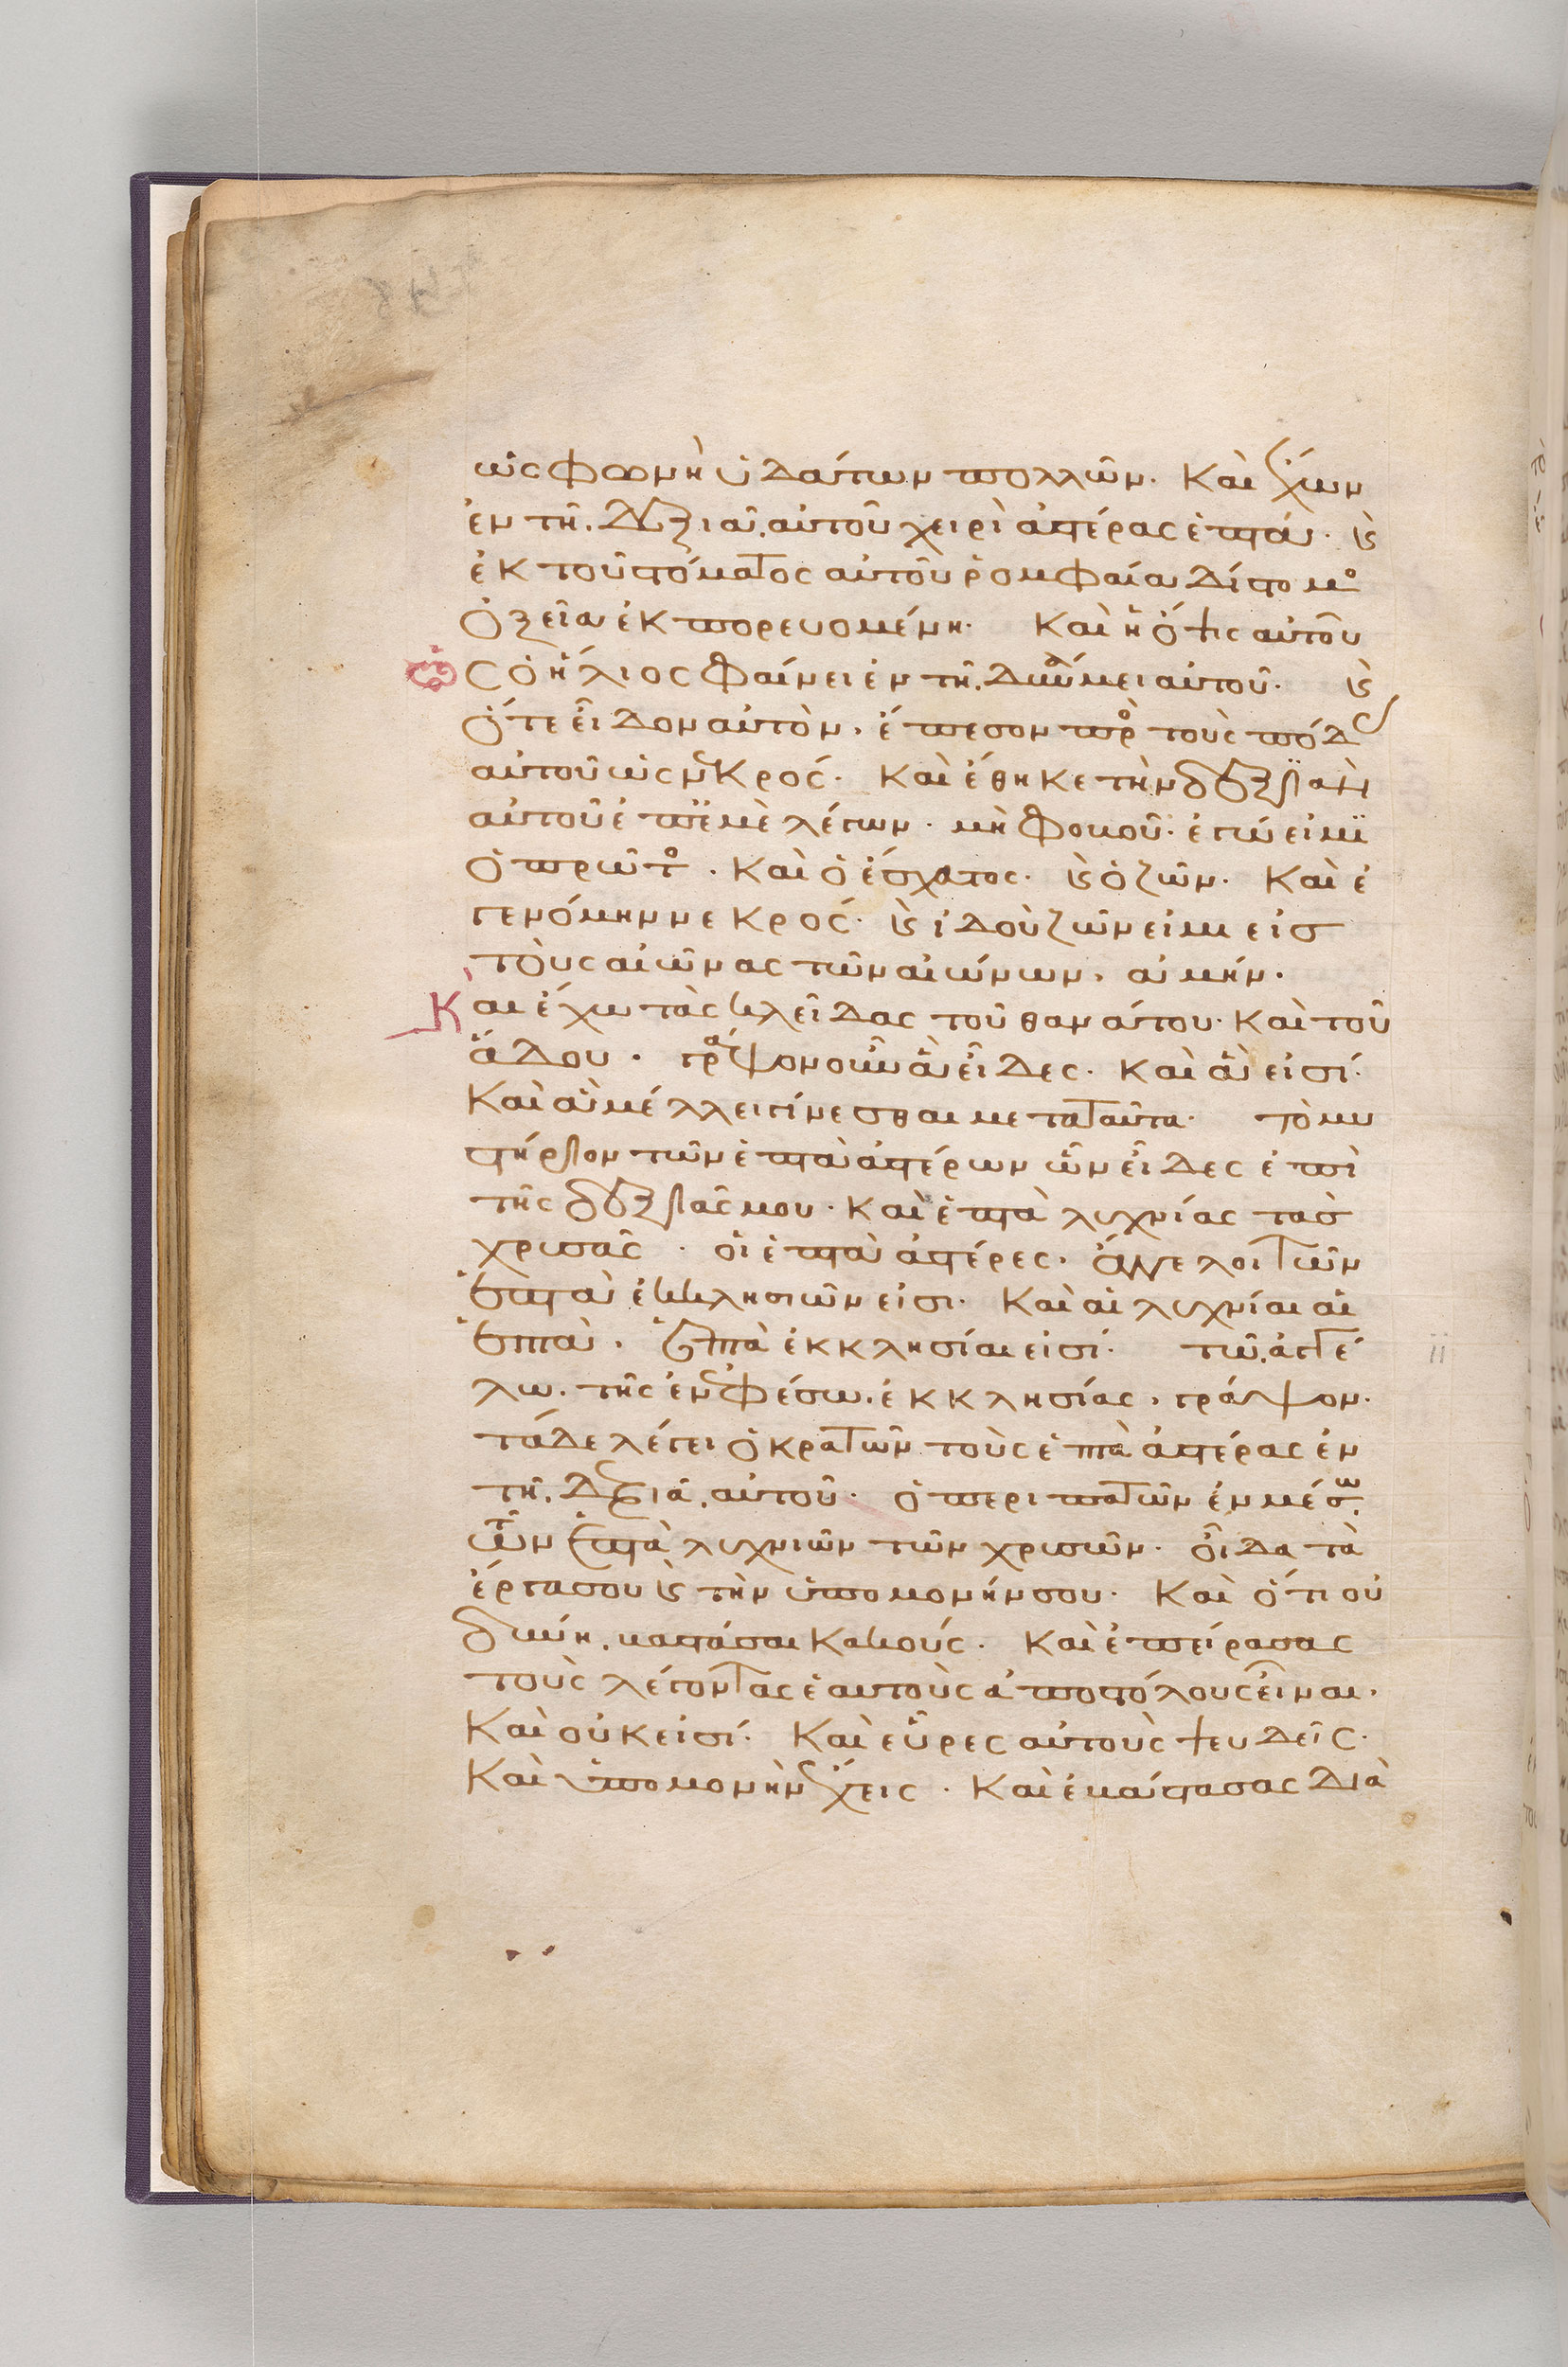 ὡς φωνὴ ὑδάτων πολλῶν. Καὶ ἔχων
ἐν τῇ δεξιᾷ αὐτοῦ χειρὶ ἀστέρας ἑπτά. κ̀
ἐκ τοῦ στόματος αὐτοῦ ῥομφαία δίστομο
ὀξεῖα ἐκπορευομένη. Καὶ ἡ ὄψις αὐτοῦ
ὡς ὁ ἥλιος φαίνει ἐν τῇ δυνάμει αὐτοῦ. κ̀
ὅτε εἶδον αὐτὸν, ἔπεσον πρὸ τοὺς πόδ
αὐτοῦ ὡς νεκρός. Καὶ ἔθηκε τὴν δεξιὰν
αὐτοῦ ἐπ ̈ἐμὲ λέγων. μὴ φοβοῦ. ἐγώ εἰμϊ
ὁ πρῶτο. Καὶ ὁ ἔσχατος. κ̀ ὁ ζῶν. Καὶ ἐ
γενόμην νεκρός. κ̀ ἰδοὺ ζῶν εἰμι εἰς
τοὺς αἰῶνας τῶν αἰώνων, ἀμήν.
Καὶ ἔχω τὰς κλεῖδας τοῦ θανάτου. Καὶ τοῦ
ἅδου. γράψον οὖν ἃ εἶδες. Καὶ ἃ εἰσί.
Καὶ ἃ μέλλει γίνεσθαι μετα ταῦτα. τὸ μυ
στήριον τῶν ἑπτὰ ἀστέρων ὧν εἶδες ἐπὶ
τῆς δεξιᾶς μου. Καὶ ἑπτὰ λυχνίας τὰς
χρυσᾶς. οἱ ἑπτὰ ἀστέρες, ἄγγελοι τῶν
ἑπτὰ ἐκκλησιῶν εἰσι. Καὶ αἱ λυχνίαι αἱ
ἑπτὰ, ἑπτὰ ἐκκλησίαι εἰσί. τῷ ἀγγέ
λῳ τῆς ἐν ἐφέσῳ ἐκκλησίας, γράψον.
τάδε λέγει ὁ κρατῶν τοὺς ἑπτὰ ἀστέρας ἐν
τῇ δεξιᾷ αὐτοῦ. ὁ περιπατῶν ἐν μέσῳ
τῶν ἑπτὰ λυχνιῶν τῶν χρυσῶν. οἶδα τὰ
ἔργα σου κ̀ τὴν ὑπομονήν σου. Καὶ ὅτι οὐ
δύνη βαστάσαι κακούς. Καὶ ἐπείρασας
τοὺς λέγοντας ἑαυτοὺς ἀποστόλους εἶναι.
Καὶ οὐκ εἰσί. Καὶ εὗρες αὐτοὺς ψευδεῖς.
Καὶ ὑπομονὴν ἔχεις. Καὶ ἐβάστασας διὰ